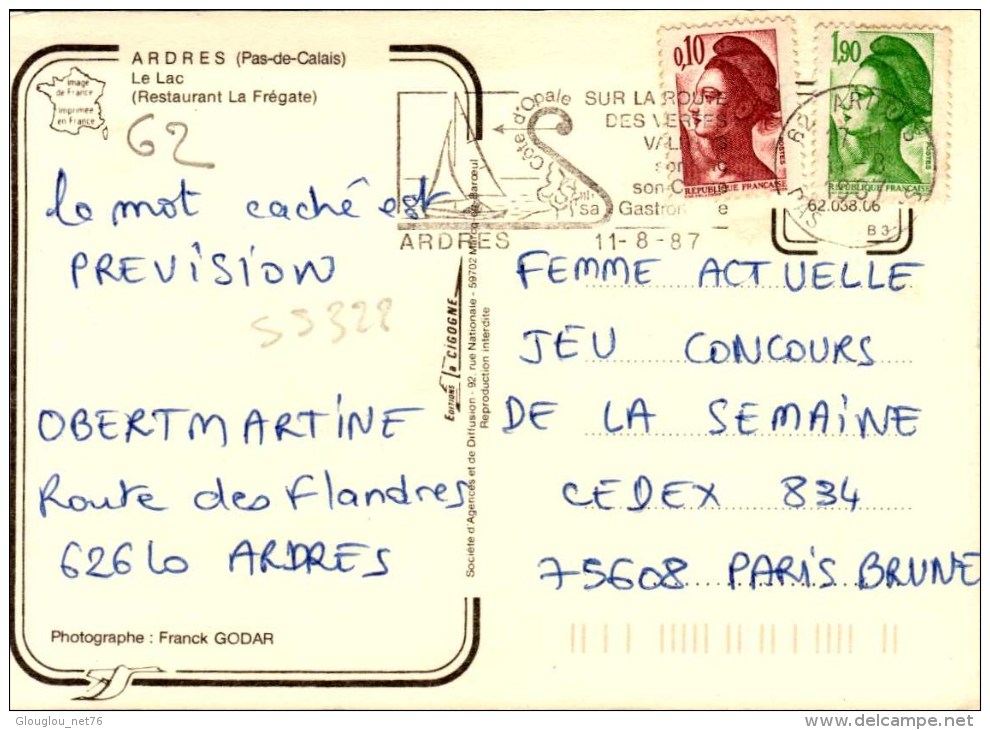 ARDRES (Pas-de-Calais)
Le Lac
(Restaurant La Frégate)
Image
de France
Imprimée
en France
62
le mot caché est
PREVISION
55328
OBERT MARTINE
Route des Flandres
62610 ARDRES
Photographe : Franck GODAR
Côte d'Opale
ARDRES
SUR LA ROUTE
DES VERTES
son
son
sa Gastronomie
11-8-87
0,10
POSTES
REPUBLIQUE FRANÇAISE
1,90
POSTES
REPUBLIQUE FRANÇAISE
62.038.06
B 3
EDITIONS la CIGOGNE
Société d'Agences et de Diffusion - 92, rue Nationale - 59702 Marcq-en-Barœul
Reproduction interdite
FEMME ACTUELLE
JEU CONCOURS
DE LA SEMAINE
CEDEX 834
75608 PARIS BRUNE
Glouglou_net76
www.delcampe.net